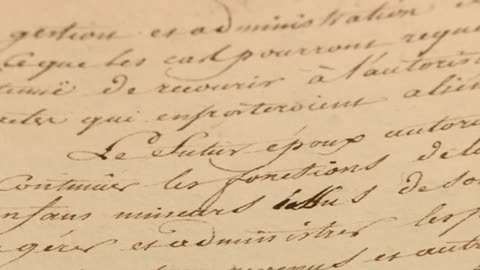 gestion et administration
ce que les cas pourront requé
de recourir à l'autoris
qui emporteroient alién
Le futur époux autoris
continuer les fonctions de la
enfans mineurs issus de so
gérer et administrer les
revenus et autr